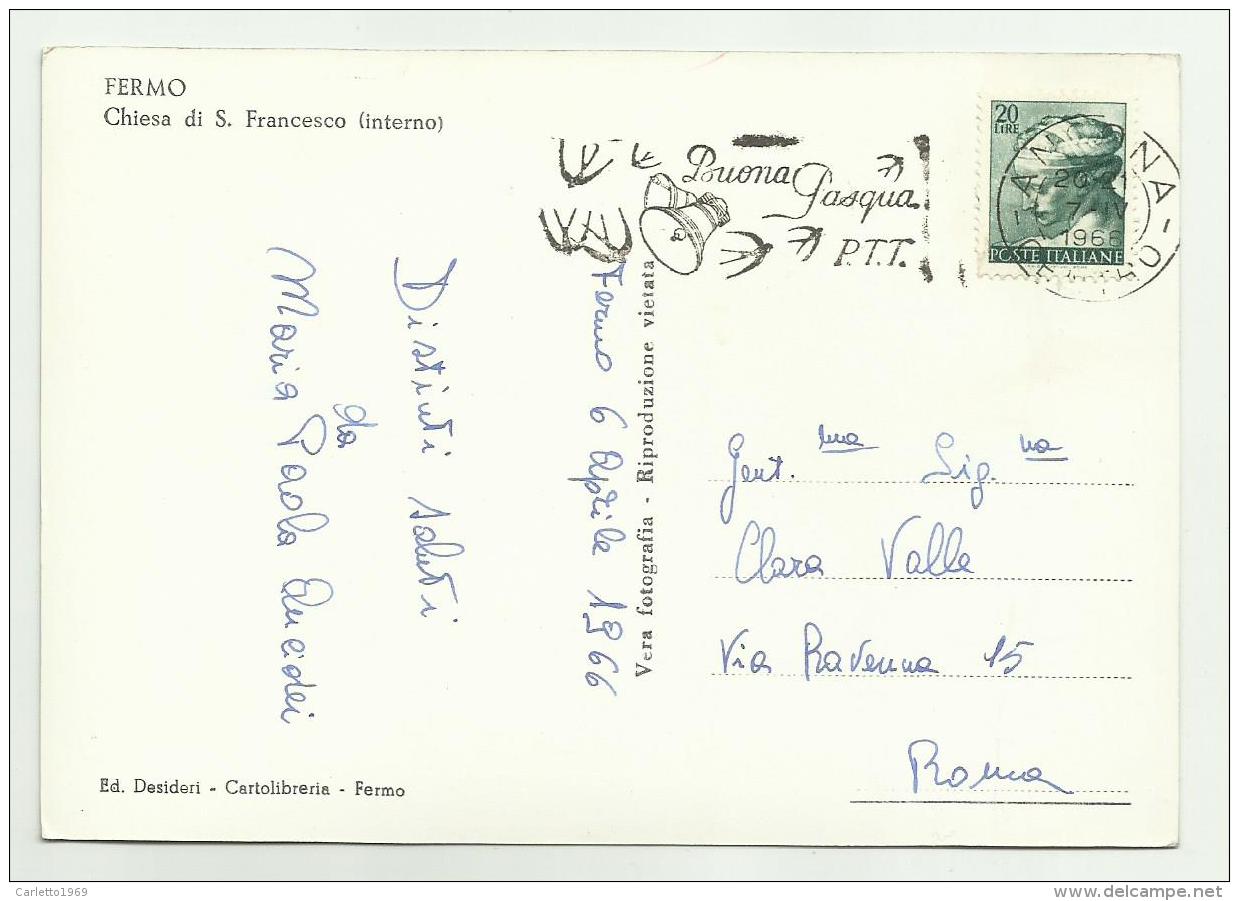 FERMO
Chiesa di S. Francesco (interno)
Buona Pasqua
P.T.T.
20
LIRE
POSTE ITALIANE
ANCONA
7 IV
1966
Fermo 6 Aprile 1966
Distinti saluti
da
Maria Paola
Vera fotografia - Riproduzione vietata
Gent.ma Sig.na
Clara Valle
Via Ravenna 15
Roma
Ed. Desideri - Cartolibreria - Fermo
Carletto1969
www.delcampe.net